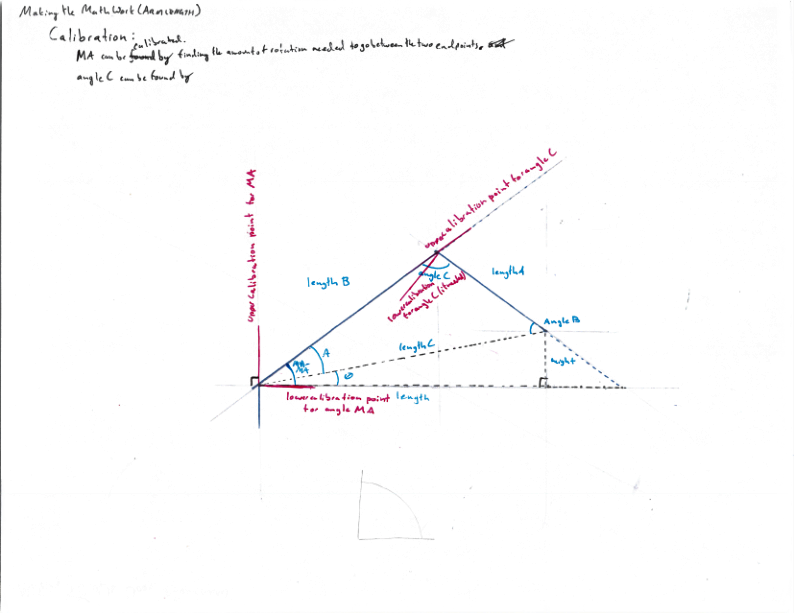 Making the Math Work (ARM1DMATH)
Calibration:
calibrated.
MA can be found by finding the amount of rotation needed to go between the two endpoints.
angle C can be found by
upper calibration point for MA
upper calibration point for angle C
length B
angle C
length A
lower calibration
for angle C (if needed)
Angle B
length C
A
MA
θ
height
lower calibration point
for angle MA
length